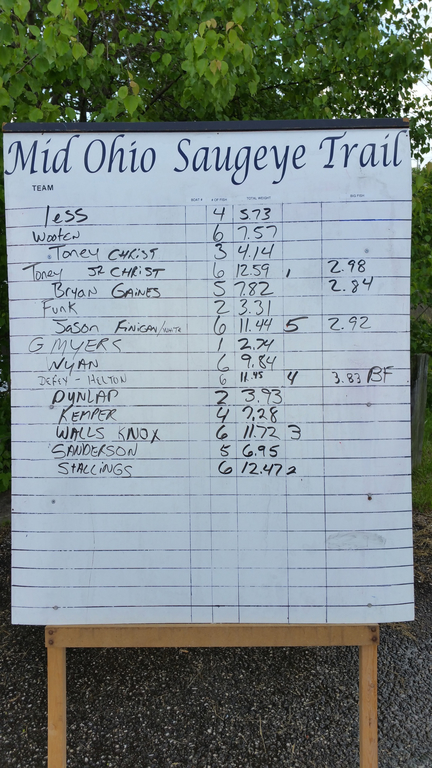 Mid Ohio Saugeye Trail
TEAM BOAT # # OF FISH TOTAL WEIGHT BIG FISH
less 4 5.73
Wooten 6 7.57
Toney CHRIST 3 4.14
Toney JR CHRIST 6 12.59 1 2.98
Bryan GAINES 5 7.82 2.84
Funk 2 3.31
Jason FINIGAN/WHITE 6 11.44 5 2.92
G MYERS 1 2.74
NYAN 6 9.84
DEFEY - HELTON 6 11.45 4 3.83 BF
DYNLAP 2 3.93
KEMPER 4 7.28
WALLS KNOX 6 11.72 3
SANDERSON 5 6.95
STALLINGS 6 12.47 2